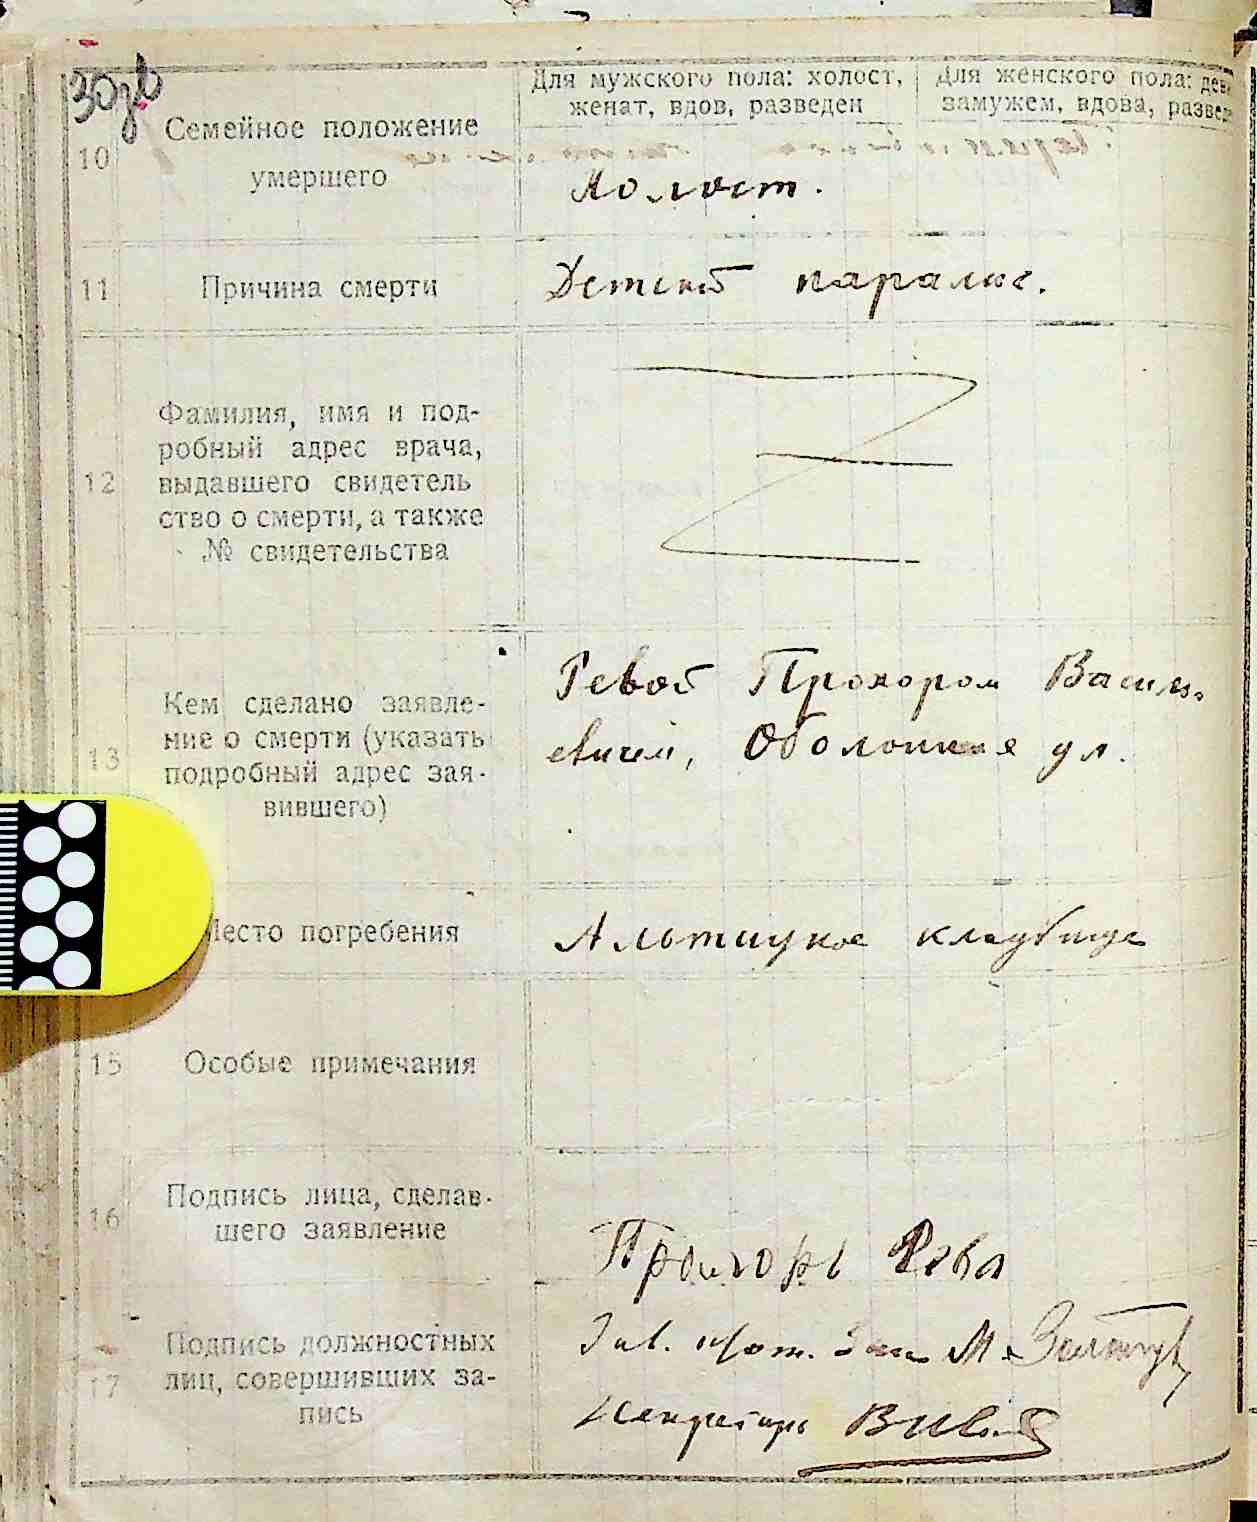 30зв
Для мужского пола: холост,
женат, вдов, разведен
Для женского пола: дев
замужем, вдова, развед
10
Семейное положение
умершего
Холост.
11
Причина смерти
Детский паралич.
12
Фамилия, имя и под-
робный адрес врача,
выдавшего свидетель
ство о смерти, а также
№ свидетельства
13
Кем сделано заявле-
ние о смерти (указать
подробный адрес зая-
вившего)
Ревой Прохором Василь
евичем, Оболонная ул.
Место погребения
кладбище
15
Особые примечания
16
Подпись лица, сделав-
шего заявление
Прохоръ Рева
17
Подпись должностных
лиц, совершивших за-
пись
Зав. М.
Секретарь